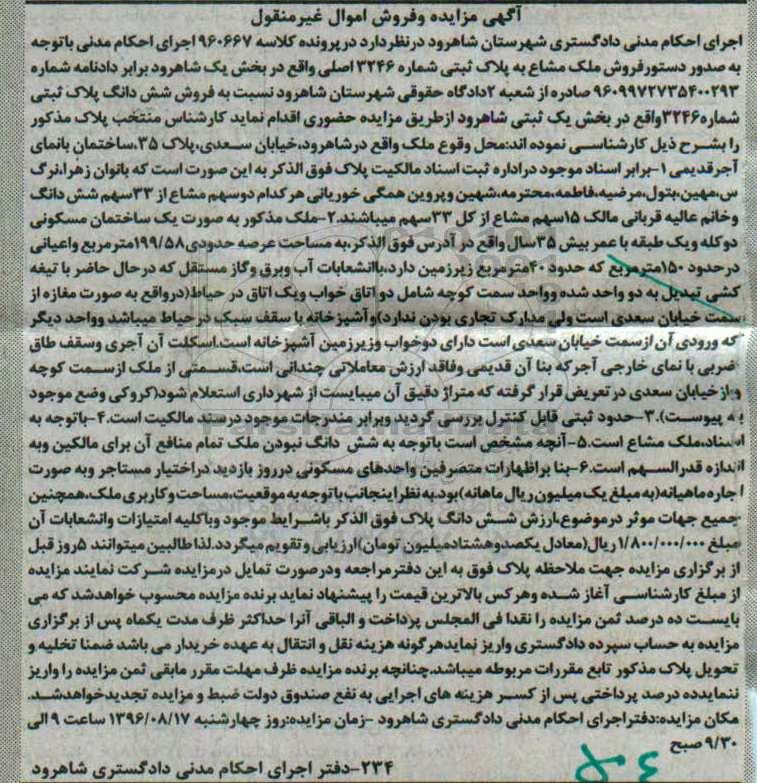 آگهی مزایده وفروش اموال غیرمنقول
اجرای احکام مدنی دادگستری شهرستان شاهرود درنظردارد درپرونده کلاسه ۹۶۰۶۶۷ اجرای احکام مدنی باتوجه
به صدور دستورفروش ملک مشاع به پلاک ثبتی شماره ۳۲۴۶ اصلی واقع در بخش یک شاهرود برابر دادنامه شماره
۹۶۰۹۹۷۲۷۳۵۴۰۰۲۹۳ صادره از شعبه ۲دادگاه حقوقی شهرستان شاهرود نسبت به فروش شش دانگ پلاک ثبتی
شماره۳۲۴۶واقع در بخش یک ثبتی شاهرود ازطریق مزایده حضوری اقدام نماید کارشناس منتخب پلاک مذکور
را بشرح ذیل کارشناسی نموده اند:محل وقوع ملک واقع درشاهرود،خیابان سعدی،پلاک ۳۵،ساختمان بانمای
آجرقدیمی ۱-برابر اسناد موجود دراداره ثبت اسناد مالکیت پلاک فوق الذکر به این صورت است که بانوان زهرا،نرگ
س،مهین،بتول،مرضیه،فاطمه،محترمه،شهین وپروین همگی خوریانی هرکدام دوسهم مشاع از ۳۳سهم شش دانگ
وخانم عالیه قربانی مالک ۱۵سهم مشاع از کل ۳۳سهم میباشند.۲-ملک مذکور به صورت یک ساختمان مسکونی
دوکله ویک طبقه با عمر بیش ۳۵سال واقع در آدرس فوق الذکر،به مساحت عرصه حدودی۱۹۹/۵۸مترمربع واعیانی
درحدود ۱۵۰مترمربع که حدود ۴۰مترمربع زیرزمین دارد،باانشعابات آب وبرق وگاز مستقل که درحال حاضر با تیغه
کشی تبدیل به دو واحد شده وواحد سمت کوچه شامل دو اتاق خواب ویک اتاق در حیاط(درواقع به صورت مغازه از
سمت خیابان سعدی است ولی مدارک تجاری بودن ندارد)وآشپزخانه با سقف سبک درحیاط میباشد وواحد دیگر
که ورودی آن ازسمت خیابان سعدی است دارای دوخواب وزیرزمین آشپزخانه است.اسکلت آن آجری وسقف طاق
ضربی با نمای خارجی آجرکه بنا آن قدیمی وفاقد ارزش معاملاتی چندانی است.قسمتی از ملک ازسمت کوچه
و ازخیابان سعدی درتعریض قرار گرفته که متراژ دقیق آن میبایست از شهرداری استعلام شود(کروکی وضع موجود
به پیوست).۳-حدود ثبتی قابل کنترل بررسی گردید وبرابر مندرجات موجود درسند مالکیت است.۴-باتوجه به
اسناد،ملک مشاع است.۵-آنچه مشخص است باتوجه به شش دانگ نبودن ملک تمام منافع آن برای مالکین وبه
اندازه قدرالسهم است.۶-بنا براظهارات متصرفین واحدهای مسکونی درروز بازدید دراختیار مستاجر وبه صورت
اجاره ماهیانه(به مبلغ یک میلیون ریال ماهانه)بود.به نظراینجانب باتوجه به موقعیت،مساحت وکاربری ملک،همچنین
جمیع جهات موثر درموضوع،ارزش شش دانگ پلاک فوق الذکر باشرایط موجود وباکلیه امتیازات وانشعابات آن
مبلغ ۱/۸۰۰/۰۰۰/۰۰۰ریال(معادل یکصدوهشتادمیلیون تومان)ارزیابی وتقویم میگردد.لذاطالبین میتوانند ۵روز قبل
از برگزاری مزایده جهت ملاحظه پلاک فوق به این دفترمراجعه ودرصورت تمایل درمزایده شرکت نمایند مزایده
از مبلغ کارشناسی آغاز شده وهرکس بالاترین قیمت را پیشنهاد نماید برنده مزایده محسوب خواهدشد که می
بایست ده درصد ثمن مزایده را نقدا فی المجلس پرداخت و الباقی آنرا حداکثر ظرف مدت یکماه پس از برگزاری
مزایده به حساب سپرده دادگستری واریز نمایدهرگونه هزینه نقل و انتقال به عهده خریدار می باشد ضمنا تخلیه و
تحویل پلاک مذکور تابع مقررات مربوطه میباشد.چنانچه برنده مزایده ظرف مهلت مقرر مابقی ثمن مزایده را واریز
ننمایدده درصد پرداختی پس از کسر هزینه های اجرایی به نفع صندوق دولت ضبط و مزایده تجدیدخواهدشد.
مکان مزایده:دفتراجرای احکام مدنی دادگستری شاهرود -زمان مزایده:روز چهارشنبه ۱۳۹۶/۰۸/۱۷ ساعت ۹ الی
۹/۳۰ صبح
۲۳۴-دفتر اجرای احکام مدنی دادگستری شاهرود